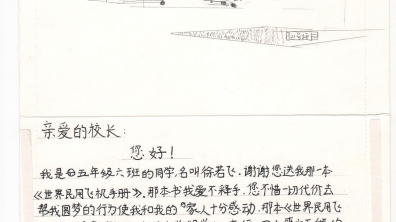 亲爱的校长:
您好!
我是五年级六班的同学,名叫徐若飞,谢谢您送我那一本
《世界民用飞机手册》。那本书我爱不释手,您不惜一切代价去
帮我圆梦的行为使我和我的家人十分感动。那本《世界民